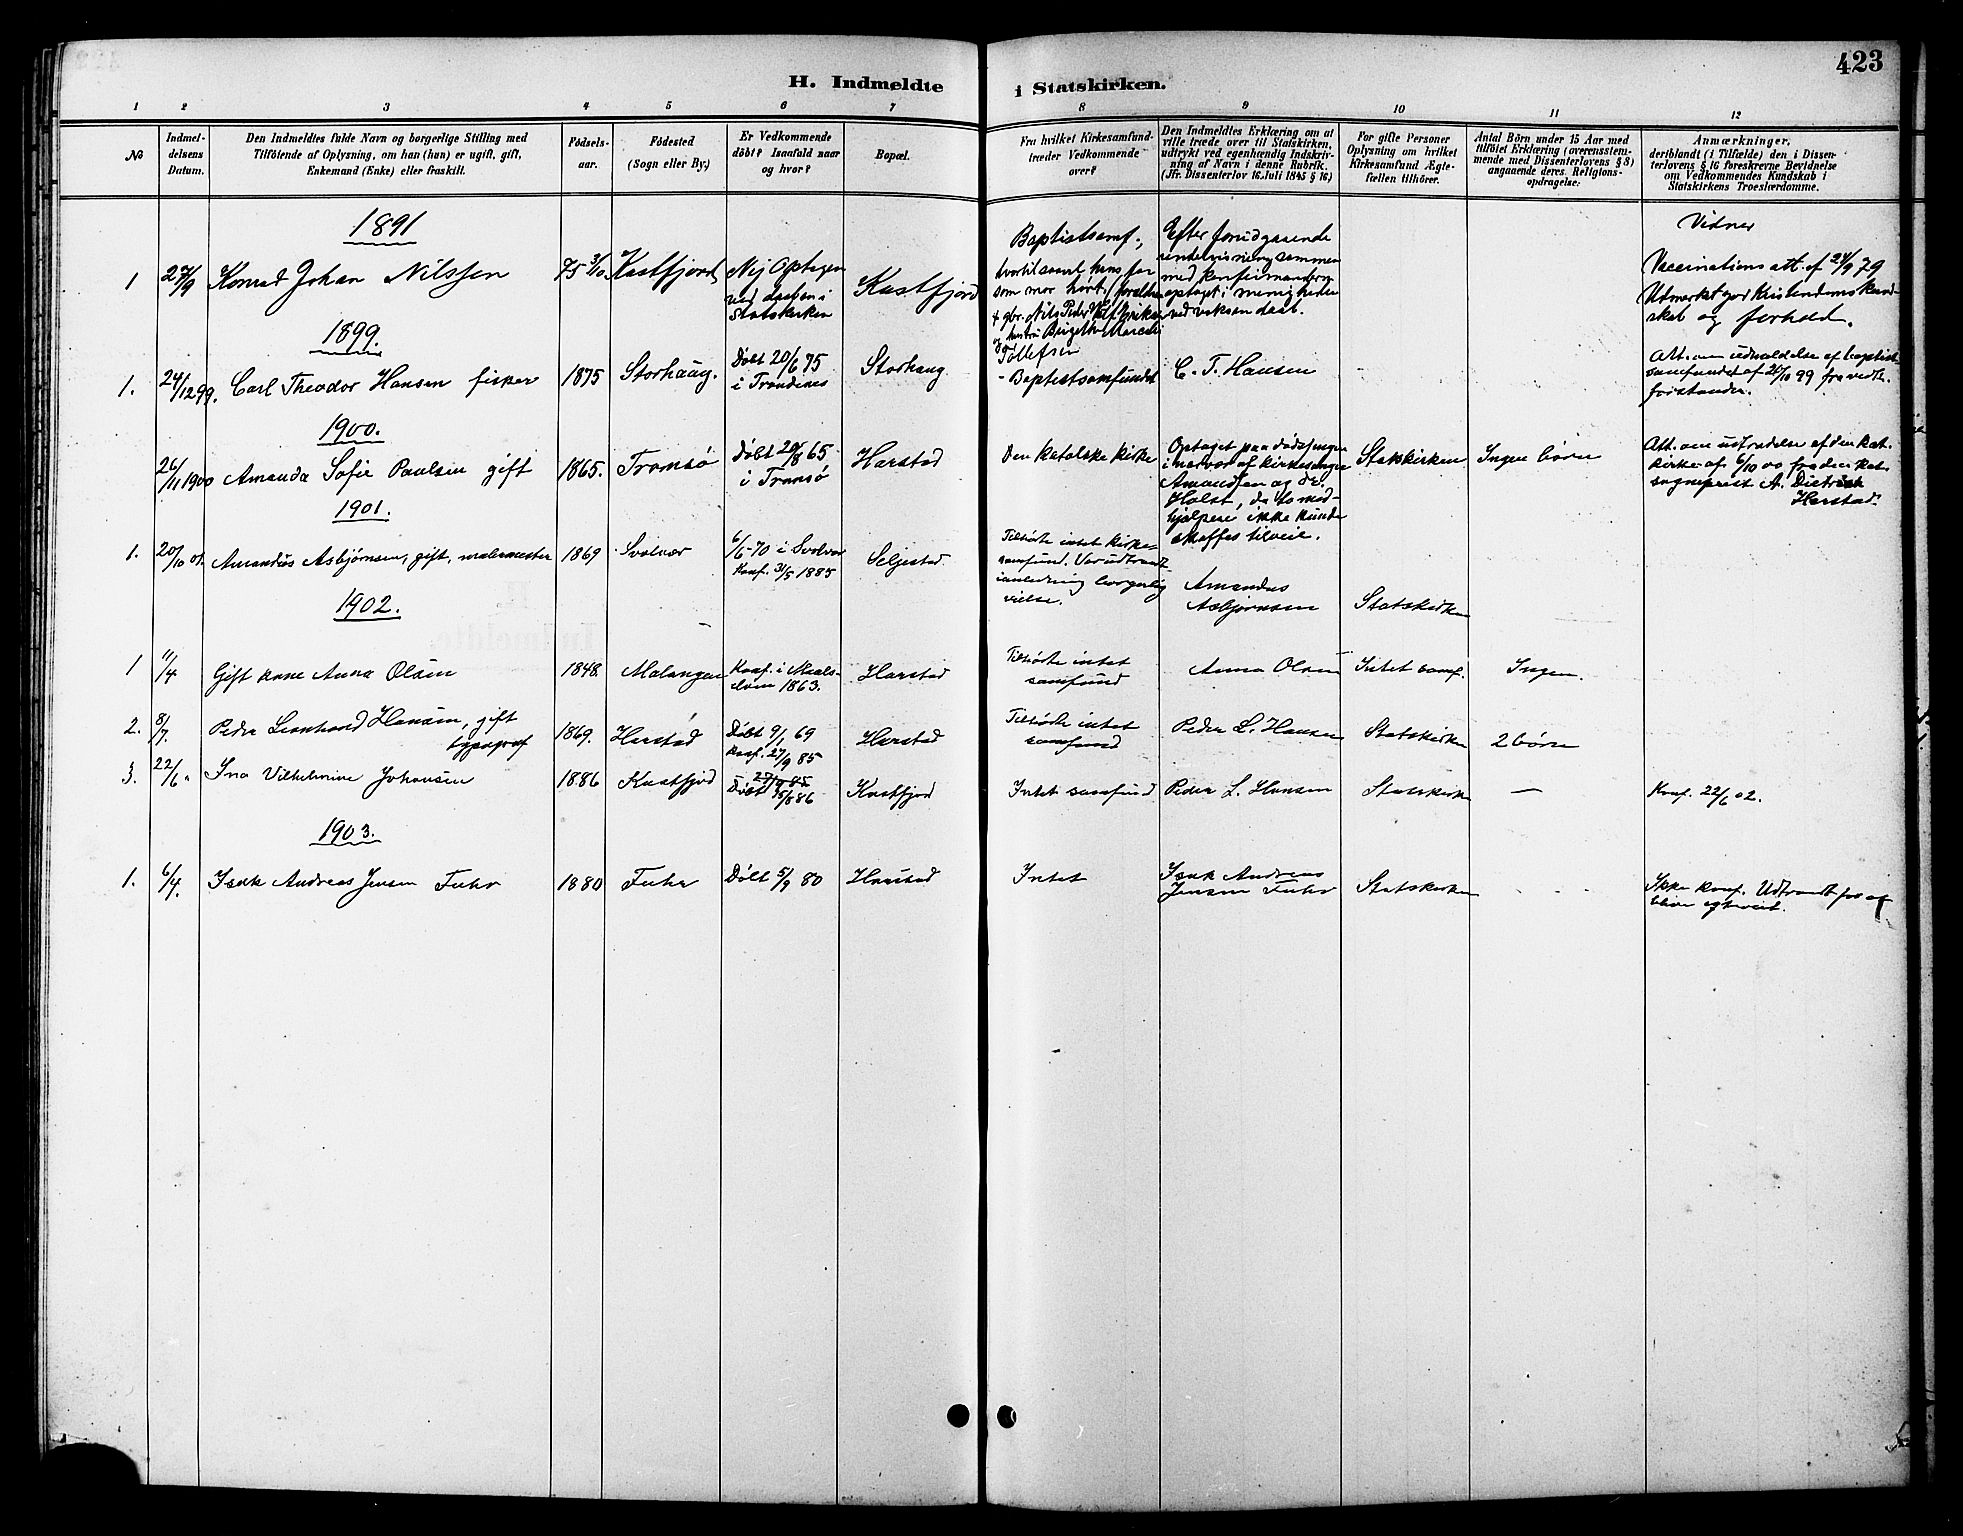 423
H. Indmeldte i Statskirken.
1 2 3 4 5 6 7 8 9 10 11 12
No
Indmel-
delsens
Datum.
Den Indmeldtes fulde Navn og borgerlige Stilling med
Tilföiende af Oplysning, om han (hun) er ugift, gift,
Enkemand (Enke) eller fraskilt.
Födsels-
aar.
Födested
(Sogn eller By.)
Er Vedkommende
döbt? Isaafald naar
og hvor?
Bopæl.
Fra hvilket Kirkesamfund
træder Vedkommende
over?
Den Indmeldtes Erklæring om at
ville træde over til Statskirken,
udtrykt ved egenhændig Indskriv-
ning af Navn i denne Rubrik.
(Jfr. Dissenterlov 16. Juli 1845 § 16)
For gifte Personer
Oplysning om hvilket
Kirkesamfund Ægte-
fællen tilhörer.
Antal Börn under 15 Aar med
tilföiet Erklæring (overensstem-
mende med Dissenterlovens § 8)
angaaende deres Religions-
opdragelse.
Anmærkninger,
deriblandt (i Tilfælde) den i Dissen-
terlovens § 16 foreskrevne Bevidnelse
om Vedkommendes Kundskab i
Statskirkens Troeslærdomme.
1891
1
27/9
Konrad Johan Nilssen
75 3/10
Kastfjord
Nej Optagen
ved daaben i
Statskirken
Kastfjord
Baptistsamf.,
hvortil saavel hans far
som mor hört. (forældre
Tollefsen
Efter forudgaaende
undervisning sammen
med konfirmanderne
optaget i menigheden
ved voksen daab.
Vidner
Vaccinations att. af 24/9 79
Udmerket god Kristendomskund-
skab og forhold.
1899.
1.
24/12 99.
Carl Theodor Hansen fisker
1875
Storhaug.
Döbt 20/6 75
i Trondenes
Storhaug
- Baptistsamfundet
C. T. Hansen
Att. om udmeldelse af baptist
samfundet af 26/10 99 fra vedk.
forstander.
1900.
26/11 1900
Amanda Sofie Paulsen gift
1865.
Tromsö
Döbt 20/8 65
i Tromsö
Harstad
Den katolske kirke
Optaget paa dödssengen
i nærvær af kirkesanger
Amundsen og dr.
Holst, da to med-
hjælpere ikke kunde
skaffes tilveie.
Statskirken
Ingen börn
Att. om udtrædelse af den kat.
kirke af 6/10 00 fra den kat.
sogneprest A. Dietrich
Harstad.
1901.
1.
20/10 01.
Amandus Asbjörnsen, gift, malermester
1869
Svolvær
6/6-70 i Svolvær
Konf. 31/5 1885
Seljestad
Tilhörte intet kirke-
samfund. Var udtraadt
i anledning borgerlig
vielse.
Amandus
Asbjørnsen
Statskirken
1902.
1
11/4
Gift kone Anna Olsen
1848.
Malangen
Konf. i Maals-
elven 1863.
Harstad
Tilhörte intet
samfund
Anna Olsen
Intet samf.
Ingen.
2.
8/7.
Peder Leonhard Hansen, gift
typograf
1869.
Harstad
Döbt 9/1 69
Konf. 27/9 85
Harstad
Tilhörte intet
samfund
Peder L. Hansen
Statskirken
2 börn
3.
22/6
Ina Vilhelmine Johansen
1886
Kastfjord
27/9 85
Döbt 15/8 86
Kastfjord
Intet samfund
Peder L. Hansen
Statskirken
—
Konf. 22/6 02.
1903.
1.
6/4.
Isak Andreas Jensen Fuhr
1880
Fuhr
Döbt 5/9 80
Harstad
Intet
Isak Andreas
Jensen Fuhr
Statskirken
Ikke konf. Udtraadt for at
blive egteviet.